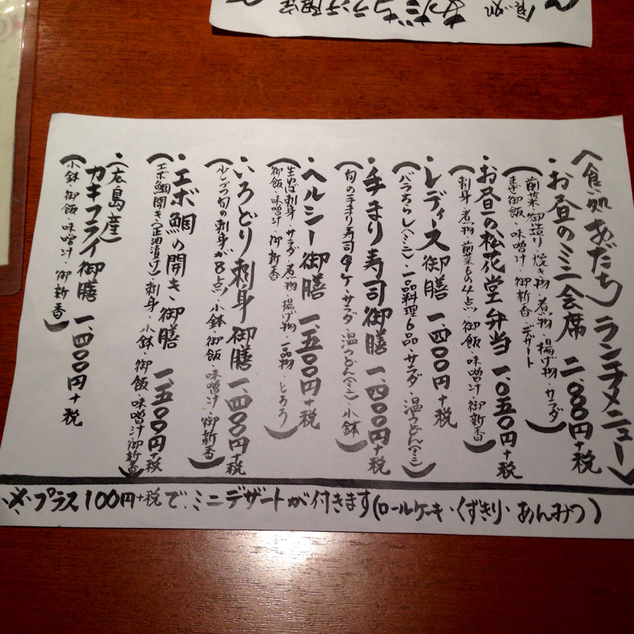 〈食い処あだち ランチメニュー〉
・お昼のミニ会席 二、八〇〇円+税
(前菜・御造り・焼き物・煮物・揚げ物・サラダ
まぜ御飯・味噌汁・御新香・デザート)
・お昼の松花堂弁当 一、〇五〇円+税
(刺身・煮物・前菜もの4点・御飯・味噌汁・御新香)
・レディース御膳 一、四〇〇円+税
(バラちらし(ミニ)・一品料理6品・サラダ・温うどん(ミニ))
・手まり寿司御膳 一、四〇〇円+税
(旬の手まり寿司9ケ・サラダ・温うどん(ミニ)・小鉢)
・ヘルシー御膳 一、五〇〇円+税
(生ゆば刺身・サラダ・煮物・揚げ物・一品物・とろろ
御飯・味噌汁・御新香)
・いろどり刺身御膳 一、四〇〇円+税
(少しづつ旬の刺身が8点・小鉢・御飯・味噌汁・御新香)
・エボ鯛の開き御膳 一、五〇〇円+税
(エボ鯛開き(正油漬け)・刺身・小鉢・御飯・味噌汁・御新香)
・(広島産)
カキフライ御膳 一、四〇〇円+税
(小鉢・御飯・味噌汁・御新香)
※プラス100円+税で、ミニデザートが付きます(ロールケーキ・くずきり・あんみつ)